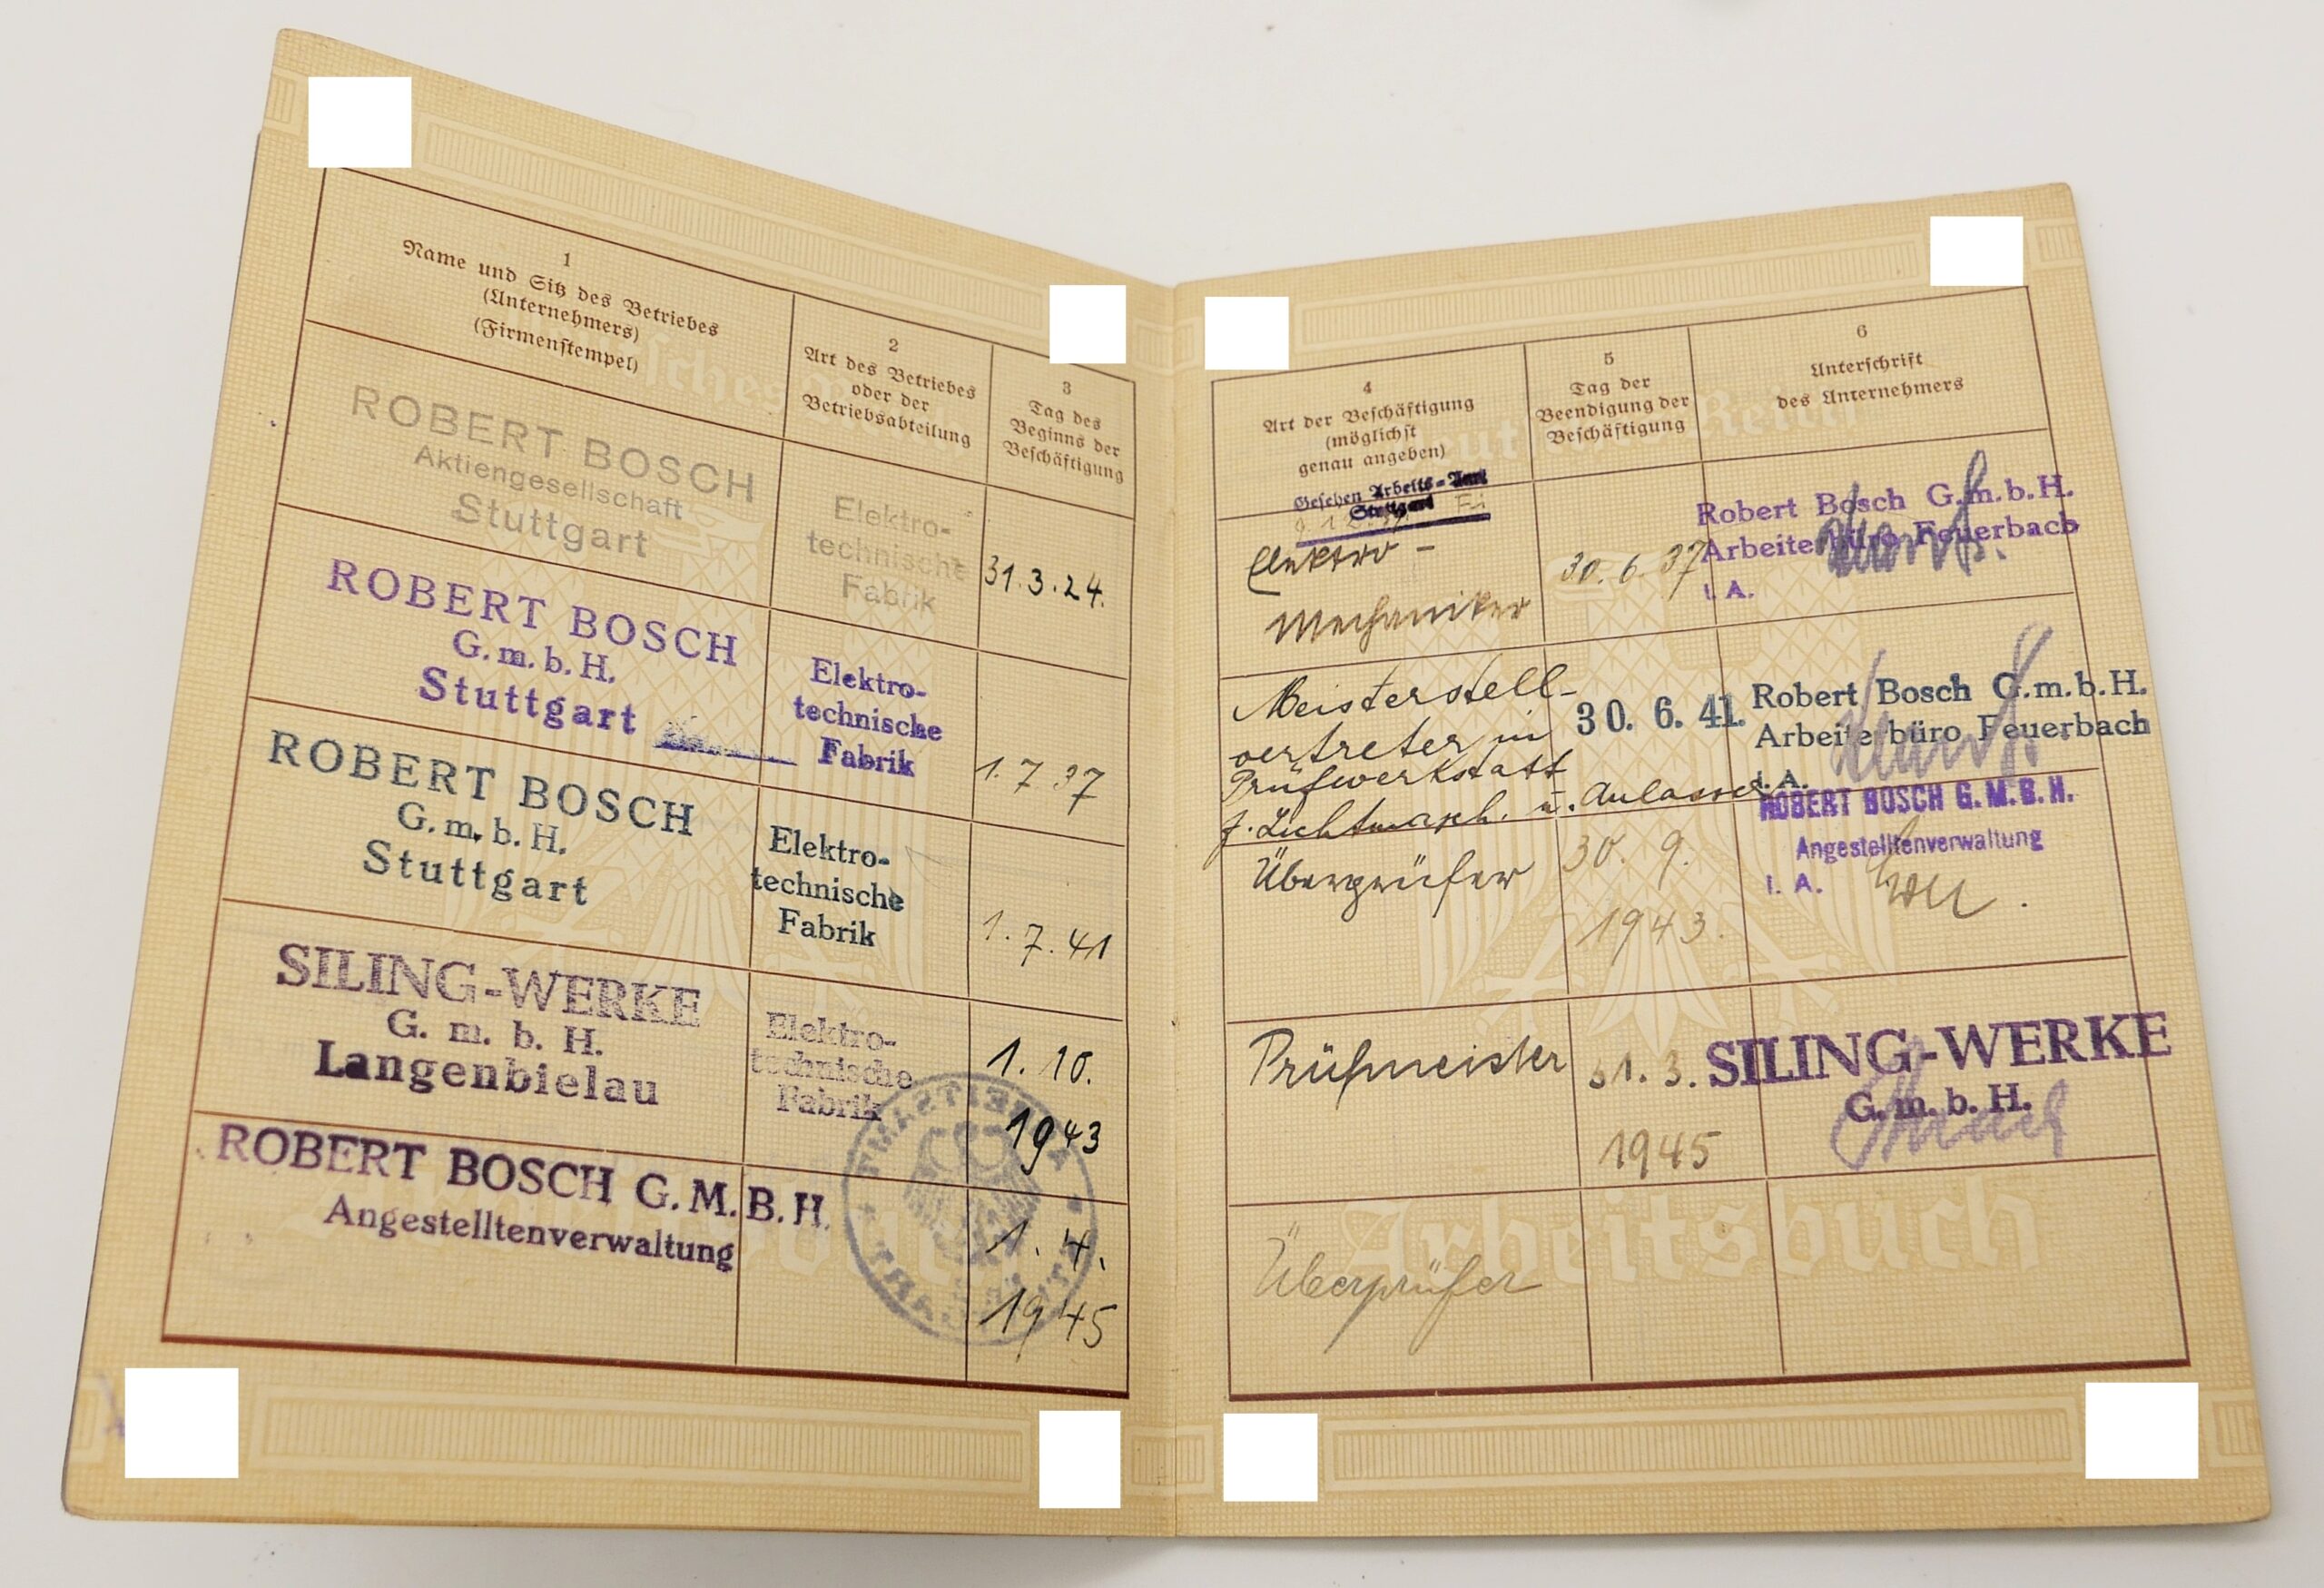 1
Name und Sitz des Betriebes
(Unternehmers)
(Firmenstempel)
2
Art des Betriebes
oder der
Betriebsabteilung
3
Tag des
Beginns der
Beschäftigung
ROBERT BOSCH
Aktiengesellschaft
Stuttgart
Elektro-
technische
Fabrik
31.3.24.
ROBERT BOSCH
G.m.b.H.
Stuttgart
Elektro-
technische
Fabrik
1.7.37
ROBERT BOSCH
G.m.b.H.
Stuttgart
Elektro-
technische
Fabrik
1.7.41
SILING-WERKE
G. m. b. H.
Langenbielau
Elektro-
technische
Fabrik
1.10.
1943
ROBERT BOSCH G.M.B.H.
Angestelltenverwaltung
1.4.
1945
4
Art der Beschäftigung
(möglichst
genau angeben)
5
Tag der
Beendigung der
Beschäftigung
6
Unterschrift
des Unternehmers
Gesehen Arbeits-Amt
Stuttgart
Elektro-
Mechaniker
30.6.37
Robert Bosch G.m.b.H.
Arbeiterbüro Feuerbach
I. A.
Meisterstell-
vertreter in
Prüfwerkstatt
f. Lichtmasch. u. Anlasser
30. 6. 41.
Robert Bosch G.m.b.H.
Arbeiterbüro Feuerbach
I. A.
Überprüfer
30. 9.
1943.
ROBERT BOSCH G.M.B.H.
Angestelltenverwaltung
I. A.
Prüfmeister
31. 3.
1945
SILING-WERKE
G. m. b. H.
Überprüfer
Arbeitsbuch